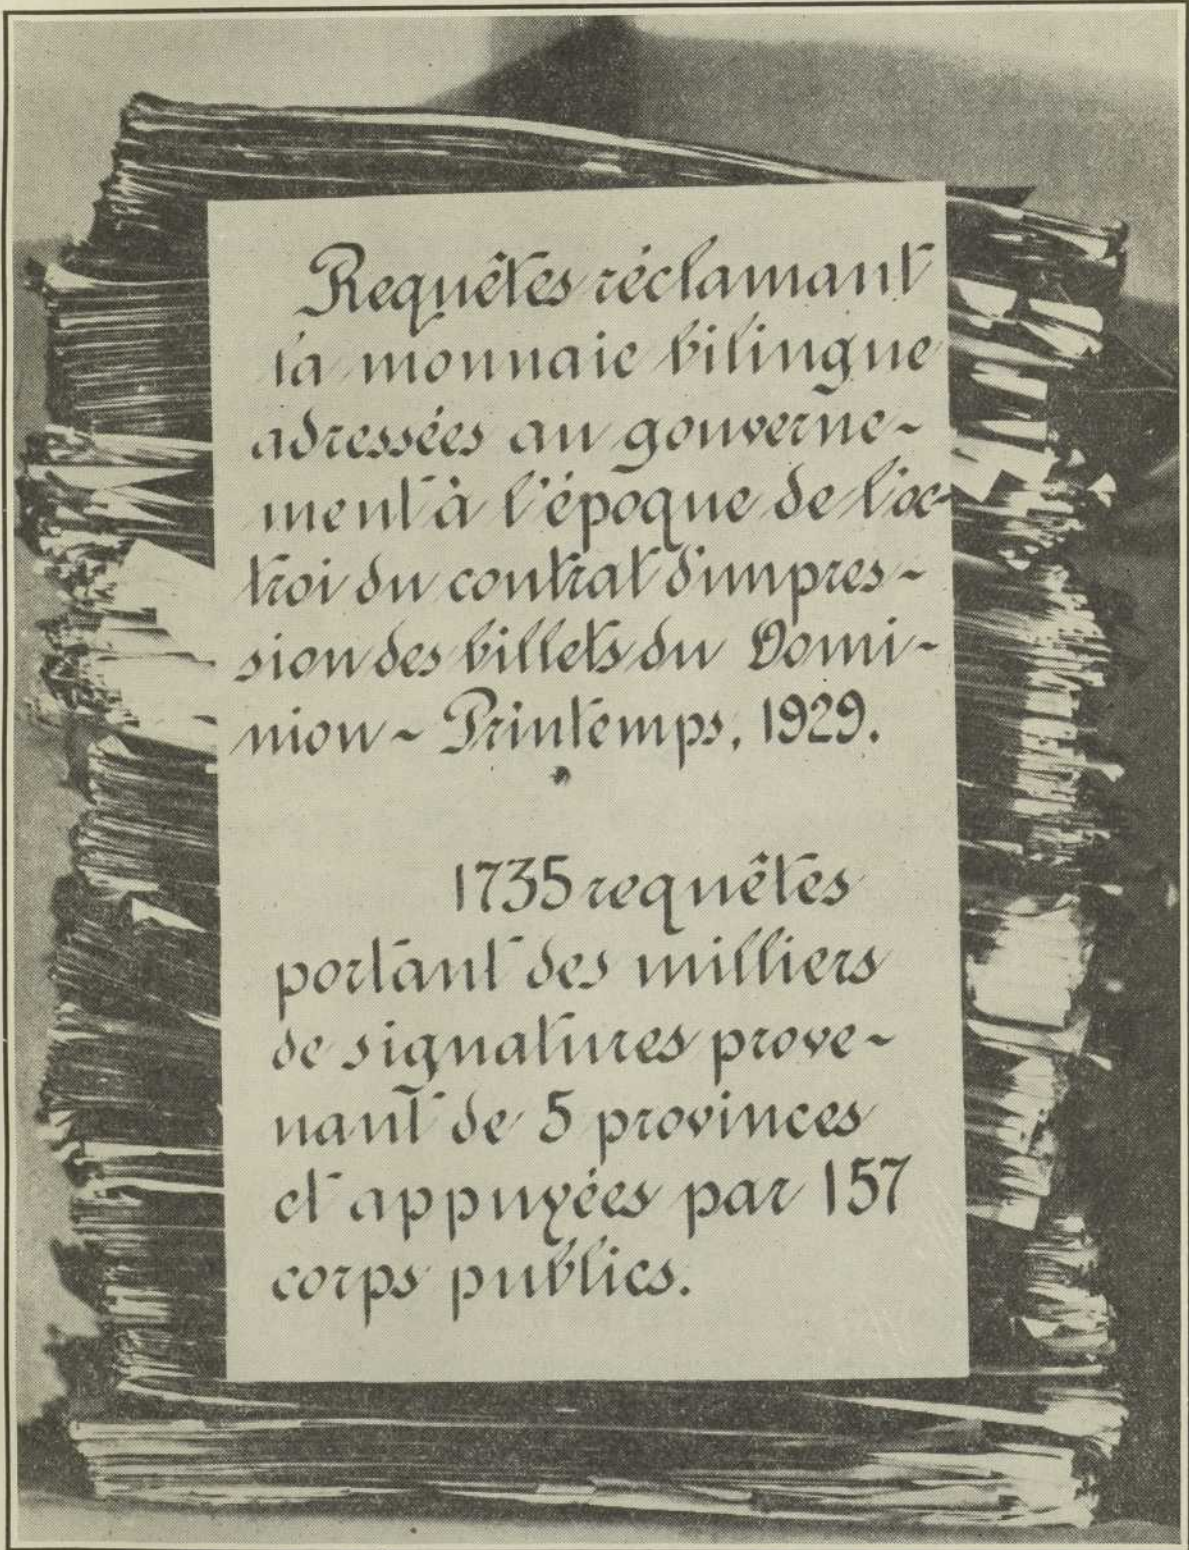 Requêtes réclamant
la monnaie bilingue
adressées au gouverne-
ment à l'époque de l'oc-
troi du contrat d'impres-
sion des billets du Domi-
nion - Printemps, 1929.
1735 requêtes
portant des milliers
de signatures prove-
nant de 5 provinces
et appuyées par 157
corps publics.